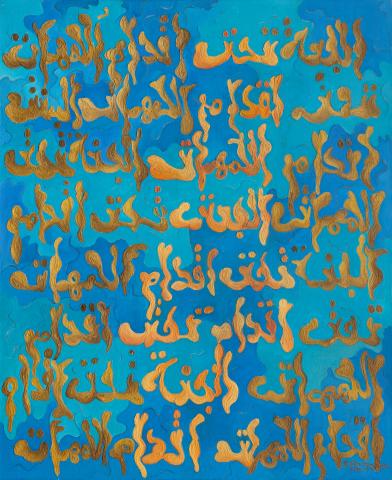 الجنة تحت اقدام الامهات
تحت اقدام الامهات الجنة
اقدام الامهات الجنة تحت
الامهات الجنة تحت اقدام
الجنة تحت اقدام الامهات
تحت اقدام تحت اقدام
الامهات الجنة تحت اقدام
اقدام الامهات اقدام الامهات